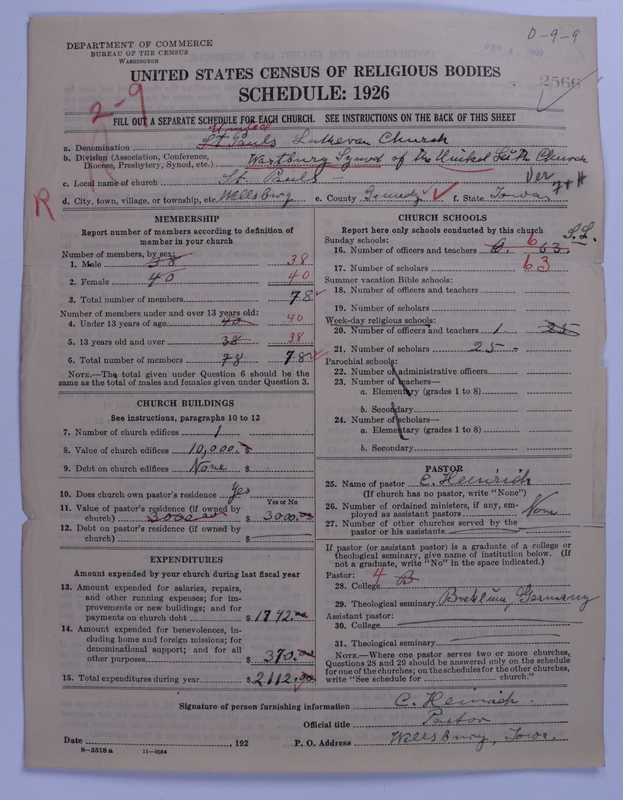 D-9-9
DEPARTMENT OF COMMERCE
BUREAU OF THE CENSUS
WASHINGTON
UNITED STATES CENSUS OF RELIGIOUS BODIES
SCHEDULE: 1926
2566
2-9
FILL OUT A SEPARATE SCHEDULE FOR EACH CHURCH. SEE INSTRUCTIONS ON THE BACK OF THIS SHEET
United
a. Denomination St Pauls Lutheran Church
b. Division (Association, Conference, Diocese, Presbytery, Synod, etc.) Wartburg Synod of the United Luth Church
c. Local name of church St. Pauls
R
d. City, town, village, or township, etc. Wellsburg e. County Grundy f. State Iowa
MEMBERSHIP
Report number of members according to definition of
member in your church
Number of members, by sex:
1. Male 38 38
2. Female 40 40
3. Total number of members 78
Number of members under and over 13 years old:
4. Under 13 years of age 40 40
5. 13 years old and over 38 38
6. Total number of members 78 78
NOTE.—The total given under Question 6 should be the
same as the total of males and females given under Question 3.
CHURCH BUILDINGS
See instructions, paragraphs 10 to 12
7. Number of church edifices 1
8. Value of church edifices 10,000. $
9. Debt on church edifices None $
10. Does church own pastor's residence Yes
Yes or No
11. Value of pastor's residence (if owned by
church) 3000 $ 3000.00
12. Debt on pastor's residence (if owned by
church) $
EXPENDITURES
Amount expended by your church during last fiscal year
13. Amount expended for salaries, repairs,
and other running expenses; for im-
provements or new buildings; and for
payments on church debt $ 1742.00
14. Amount expended for benevolences, in-
cluding home and foreign missions; for
denominational support; and for all
other purposes $ 370.00
15. Total expenditures during year $ 2112.00
CHURCH SCHOOLS
Report here only schools conducted by this church S.L.
Sunday schools:
16. Number of officers and teachers 6. 63. 6
17. Number of scholars 63
Summer vacation Bible schools:
18. Number of officers and teachers
19. Number of scholars
Week-day religious schools:
20. Number of officers and teachers 1. 25
21. Number of scholars 25
Parochial schools:
22. Number of administrative officers
23. Number of teachers—
a. Elementary (grades 1 to 8)
b. Secondary
24. Number of scholars—
a. Elementary (grades 1 to 8)
b. Secondary
PASTOR
25. Name of pastor C. Heinrich
(If church has no pastor, write "None")
26. Number of ordained ministers, if any, em-
ployed as assistant pastors None
27. Number of other churches served by the
pastor or his assistants
If pastor (or assistant pastor) is a graduate of a college or
theological seminary, give name of institution below. (If
not a graduate, write "No" in the space indicated.)
Pastor: 4
28. College
29. Theological seminary Breklum, Germany
Assistant pastor:
30. College
31. Theological seminary
NOTE.—Where one pastor serves two or more churches,
Questions 28 and 29 should be answered only on the schedule
for one of the churches; on the schedules for the other churches,
write "See schedule for church."
Signature of person furnishing information C. Heinrich.
Official title Pastor
Date , 192 P. O. Address Wellsburg, Iowa.
8—5518a 11—9064